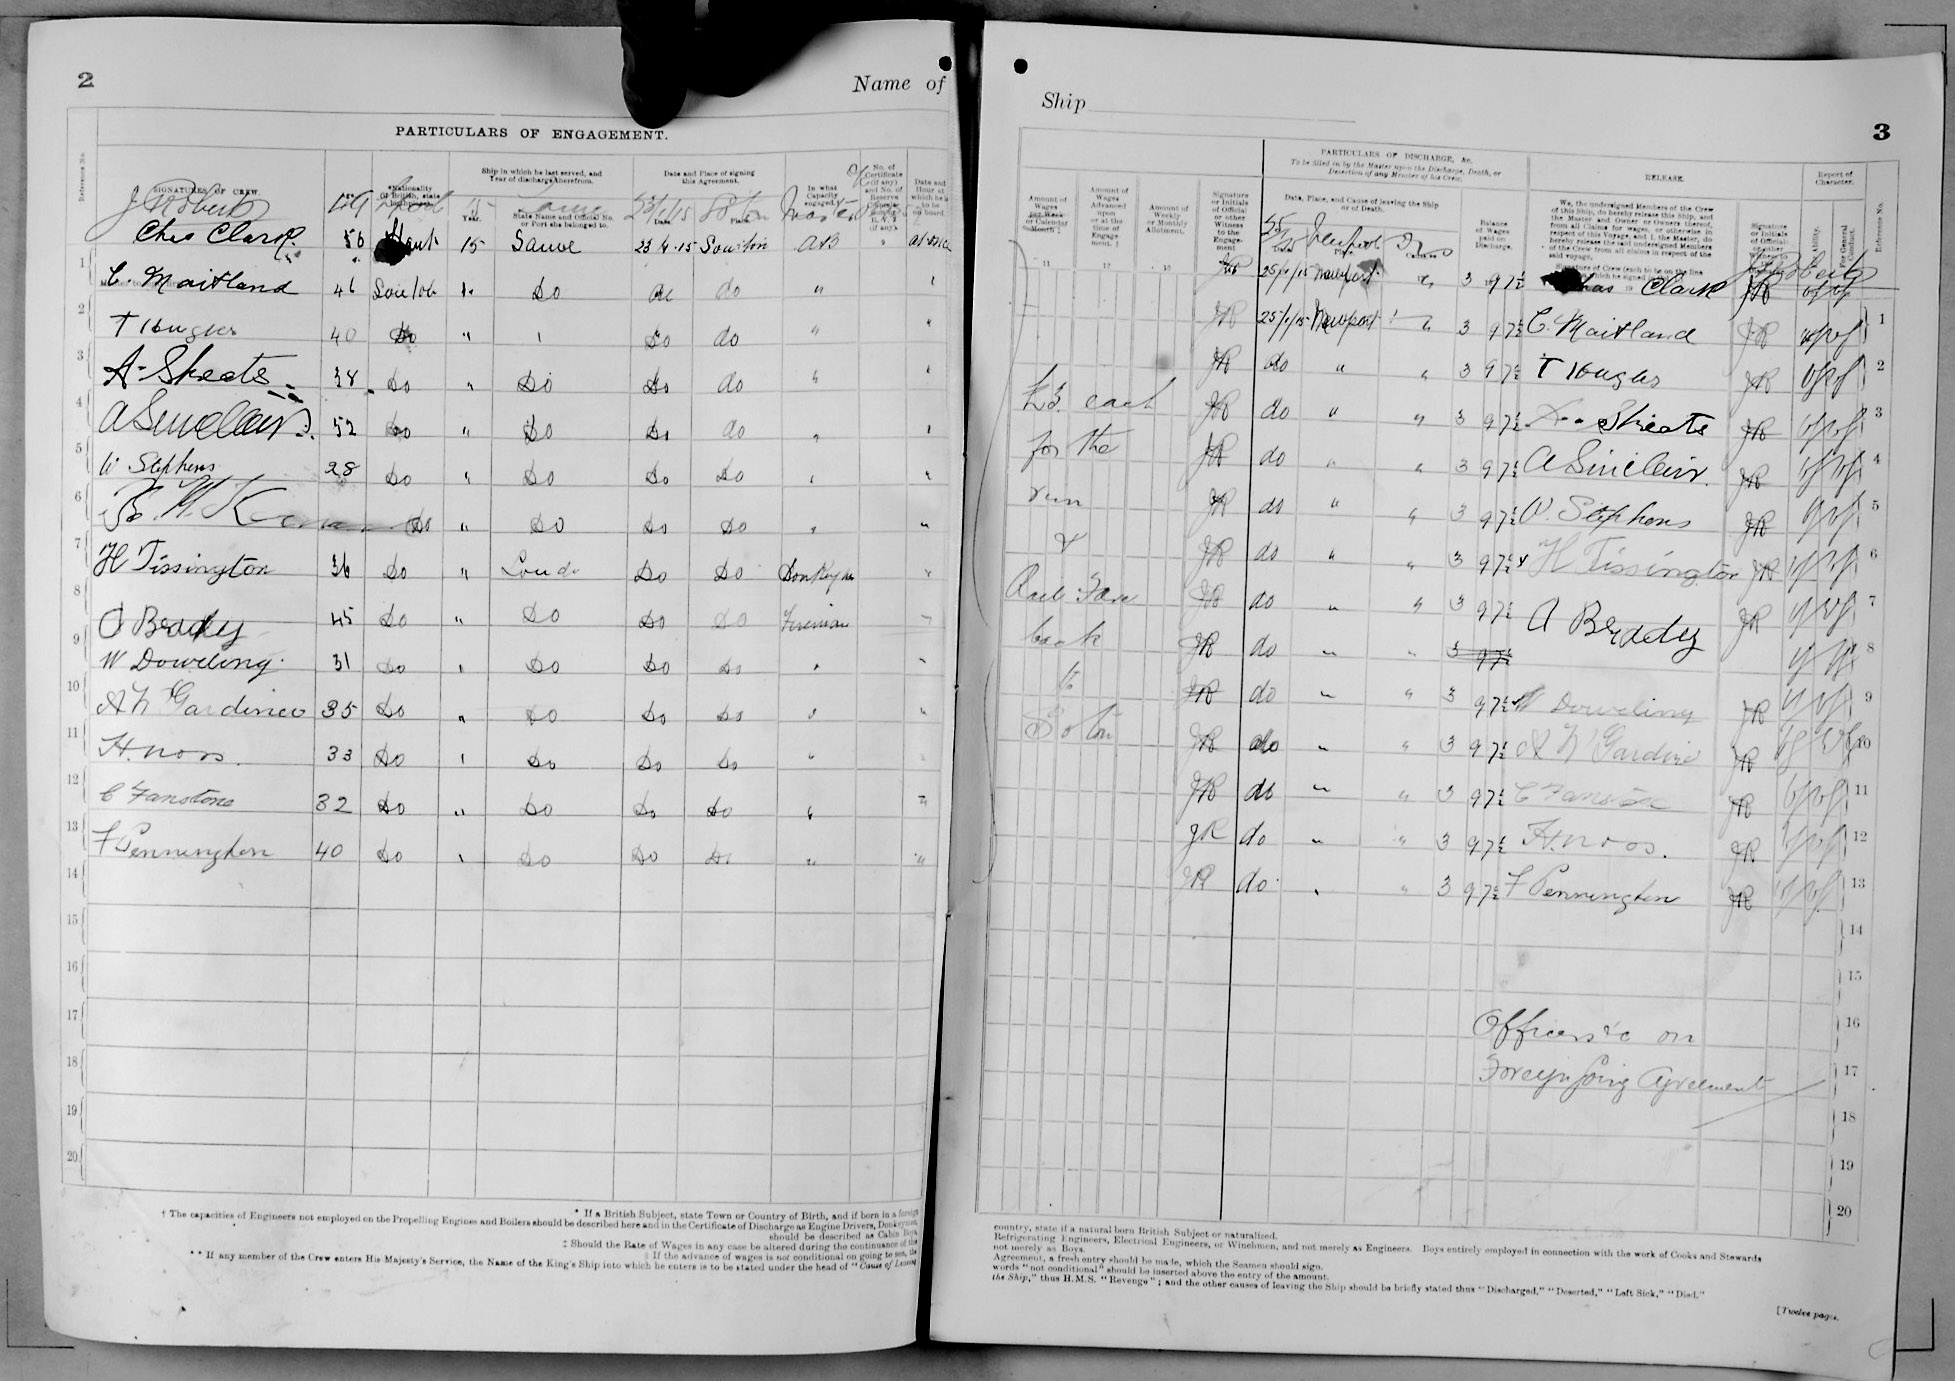 2
Name of
PARTICULARS OF ENGAGEMENT.
Reference No.
SIGNATURES OF CREW.
Age
*Nationality
(If British, state
Ship in which he last served, and
Year of discharge therefrom.
Year.
State Name and Official No.
or Port she belonged to.
Date and Place of signing
this Agreement.
Date.
Place.
In what
Capacity
engaged.
No. of
Certificate
(if any)
and No. of
Reserve
R. V. 2
(if any).
Date and
Hour at
which he is
to be
on board.
J Roberts 15 Same 23/4/15 Soton Master
Chas Clark. 56 Hants 15 Same 23/4/15 Souton AB at once
1 C. Maitland 46 Souton " Do do "
2 T Hughes 40 Do " Do do "
3 A. Skeats. 38 Do " Do Do do "
4 A Sinclair. 52 Do " Do Do do "
5 W Stephens 28 Do " Do Do Do "
6 Do " Do Do Do "
7 H Tissington 36 Do " Do Do
8 A Braddy 45 Do " Do Do Do Fireman
9 W Doweling. 31 Do " Do Do Do "
10 A N Gardiner 35 Do " Do Do Do "
11 H. noss. 33 Do " Do Do Do "
12 C Fanstone 32 Do " Do Do Do "
13 F Pennington 40 Do " Do Do Do "
14
15
16
17
18
19
20
* If a British Subject, state Town or Country of Birth, and if born in a foreign
† The capacities of Engineers not employed on the Propelling Engines and Boilers should be described here and in the Certificate of Discharge as Engine Drivers, Donkeymen,
should be described as Cabin Boys,
‡ Should the Rate of Wages in any case be altered during the continuance of the
§ If the advance of wages is not conditional on going to sea, the
** If any member of the Crew enters His Majesty's Service, the Name of the King's Ship into which he enters is to be stated under the head of "Cause of Leaving
Ship
3
PARTICULARS OF DISCHARGE, &c.
To be filled in by the Master upon the Discharge, Death, or
Desertion of any Member of his Crew.
RELEASE.
Report of
Character.
Amount of
Wages
per Week
or Calendar
Month
Amount of
Wages
Advanced
upon
or at the
time of
Engage-
ment.
Amount of
Weekly
or Monthly
Allotment.
Signature
or Initials
of Official
or other
Witness
to the
Engage-
ment
Date, Place, and Cause of leaving the Ship
or of Death.
Place
Cause
Balance
of Wages
paid on
Discharge.
We, the undersigned Members of the Crew
of this Ship, do hereby release this Ship, and
the Master and Owner or Owners thereof,
from all Claims for wages, or otherwise in
respect of this Voyage, and I, the Master, do
hereby release the said undersigned Members
of the Crew from all claims in respect of the
said voyage.
Signature of Crew (each to be on the line
Signature
or Initials
of Official
or other
Ability.
For General
Conduct.
Reference No.
11 12 13
J Roberts
JR Newport 3 9 7½ Chas Clark JR
JR Newport " 3 9 7½ C. Maitland JR 1
JR do " " 3 9 7½ T Hughes JR 2
£3. each JR do " " 3 9 7½ Skeats JR 3
for the JR do " " 3 9 7½ A Sinclair. JR 4
run JR do " " 3 9 7½ W. Stephens JR 5
& JR do " " 3 9 7½ H Tissington JR 6
Rail Fare JR do " " 3 9 7½ A Braddy JR 7
back JR do " " 3 9 7½ 8
to JR do " " 3 9 7½ W Doweling JR 9
Soton JR do " " 3 9 7½ A N Gardiner JR 10
JR do " " 3 9 7½ C Fanstone JR 11
JR do " " 3 9 7½ H. noss. JR 12
JR do " " 3 9 7½ F Pennington JR 13
14
15
Officers &c on 16
Foreign going Agreement 17
18
19
20
country, state if a natural born British Subject or naturalized.
Refrigerating Engineers, Electrical Engineers, or Winchmen, and not merely as Engineers. Boys entirely employed in connection with the work of Cooks and Stewards
not merely as Boys.
Agreement, a fresh entry should be made, which the Seamen should sign.
words "not conditional" should be inserted above the entry of the amount.
the Ship," thus H.M.S. "Revenge"; and the other causes of leaving the Ship should be briefly stated thus "Discharged," "Deserted," "Left Sick," "Died."
[Twelve pages.